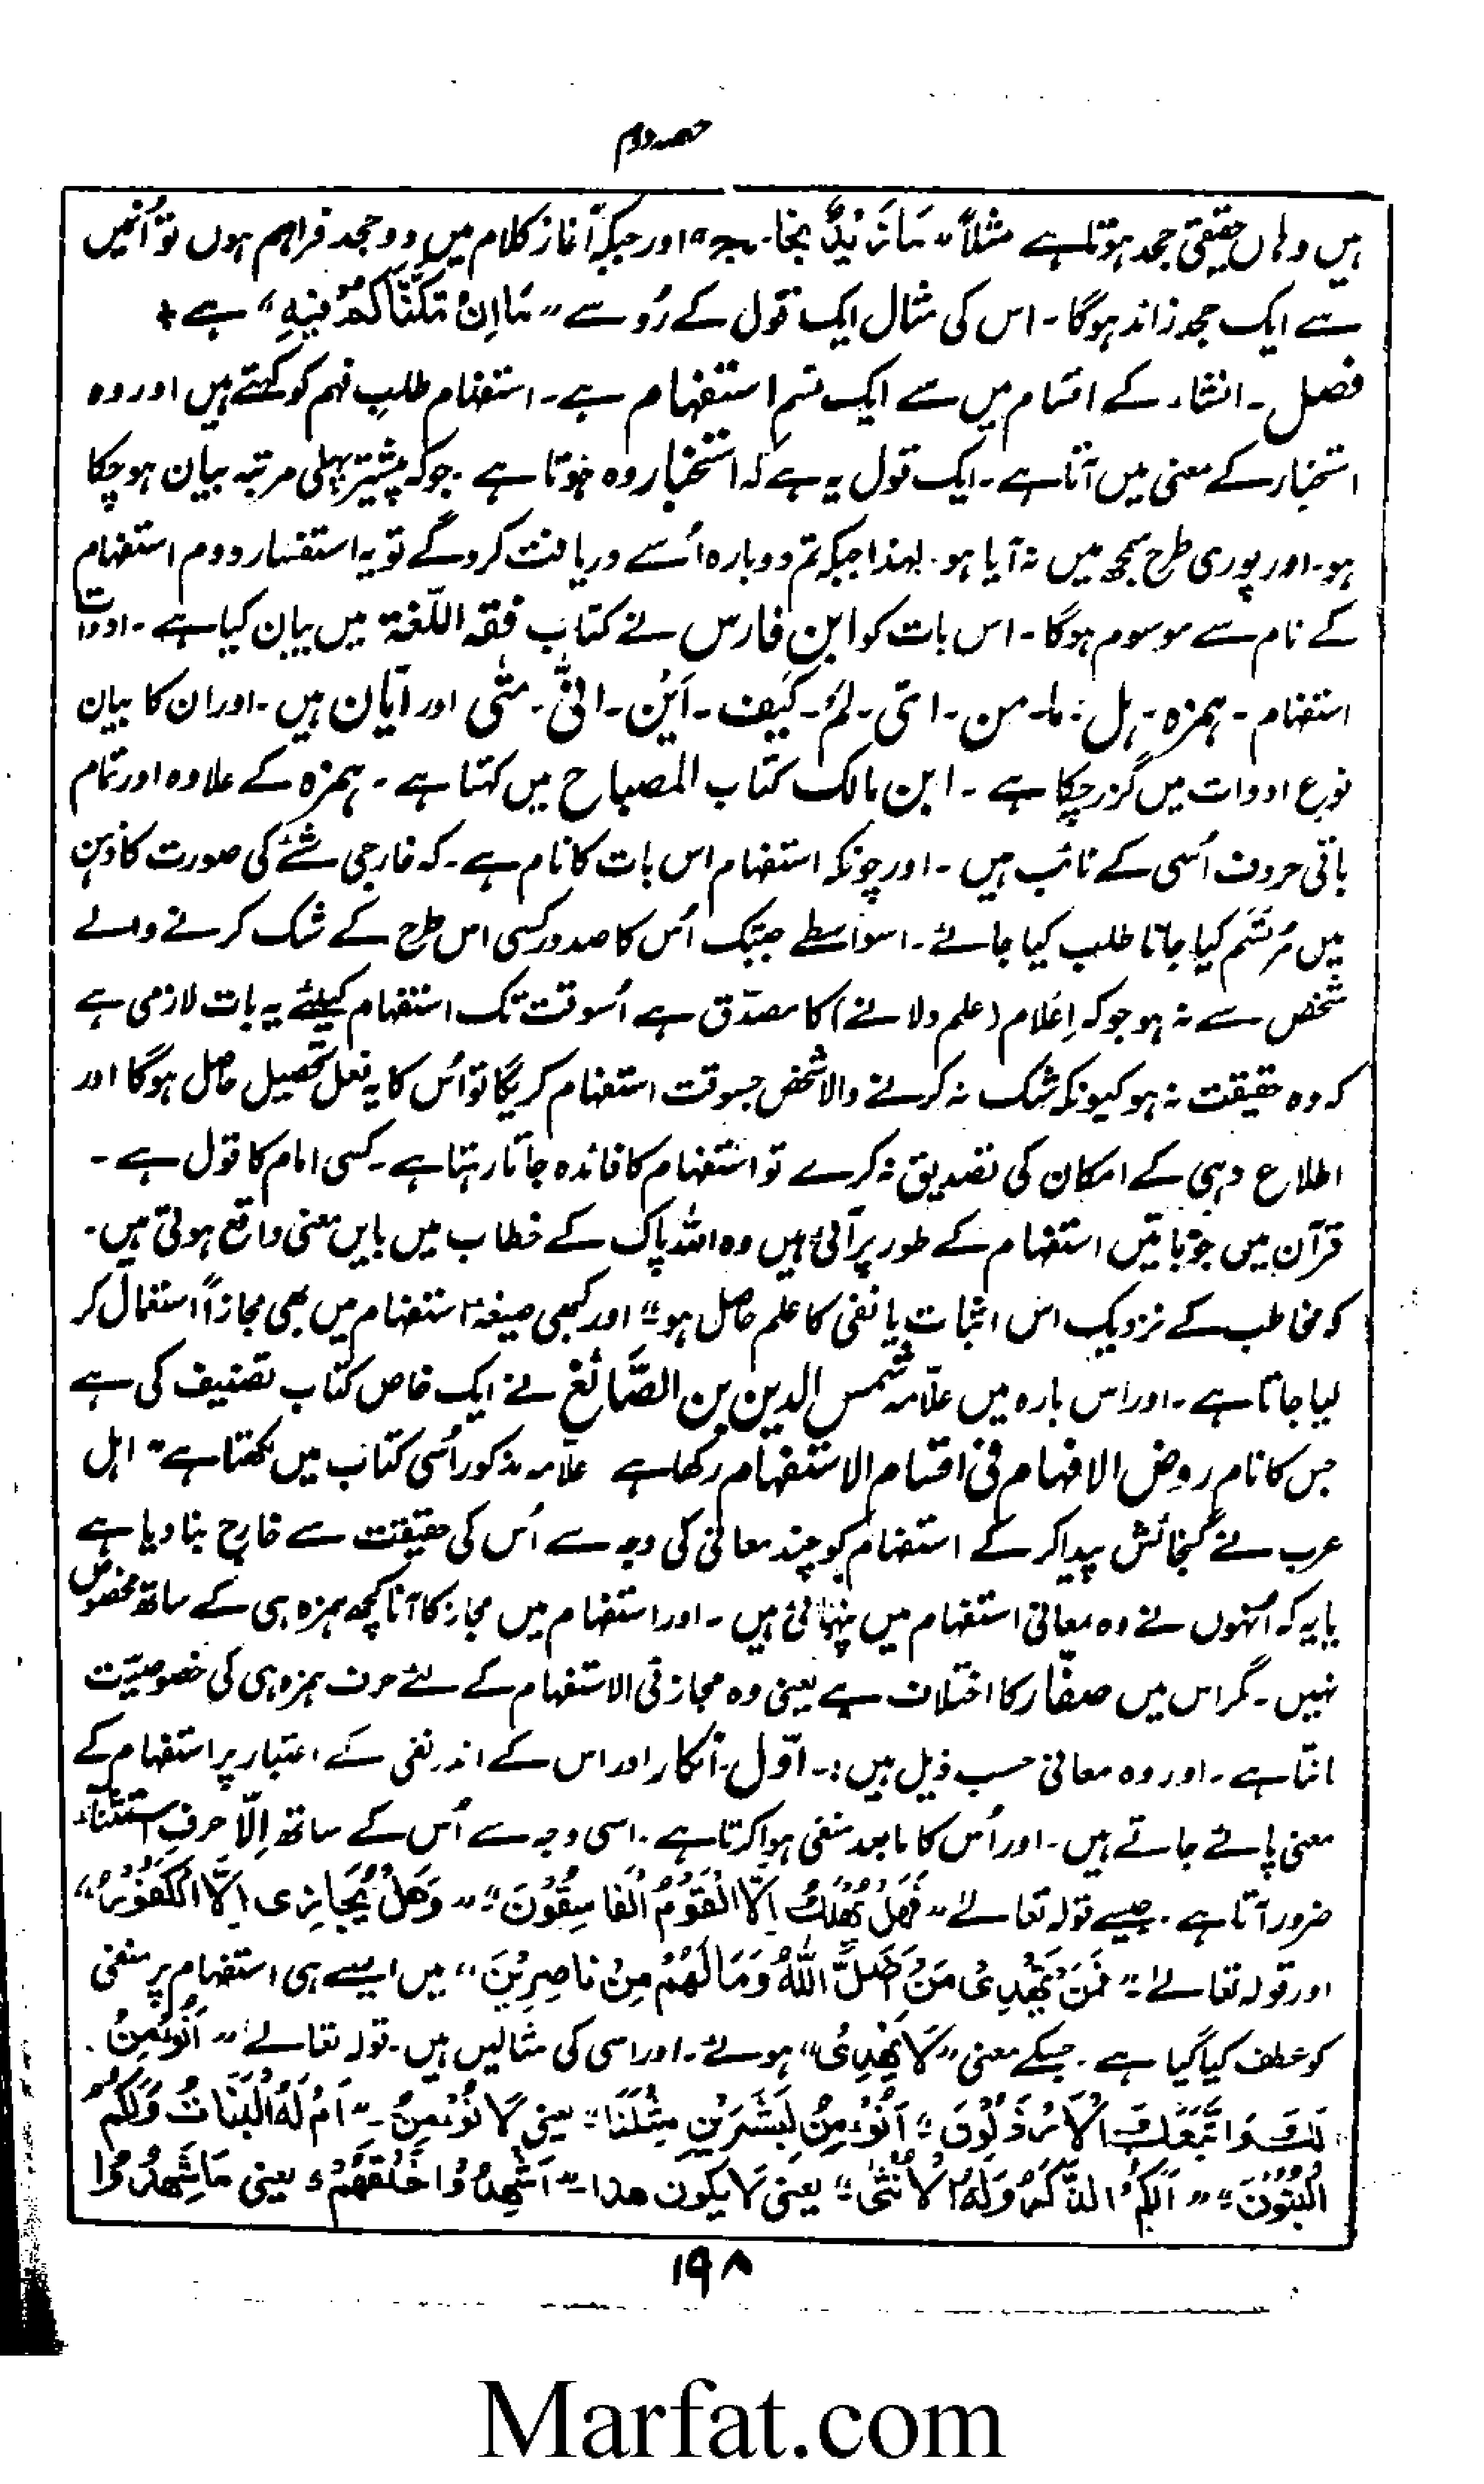 حصہ دوم
ہیں وہاں حقیقی جحد ہوتا ہے مثلاً "مَا زَیْدٌ بخا۔رج" اور جبکہ آغاز کلام میں دو جحد فراہم ہوں تو اُنہیں
سے ایک جحد زائد ہوگا۔ اس کی مثال ایک قول کے رُو سے "مَا اِنْ مَّکَّنَّاکُمْ فِیْہِ" ہے +
فصل۔ انشاء کے اقسام میں سے ایک قسم استفہام ہے۔ استفہام طلب فہم کو کہتے ہیں اور وہ
استخبار کے معنی میں آتا ہے۔ ایک قول یہ ہے کہ استخبار وہ ہوتا ہے۔ جو کہ پیشتر پہلی مرتبہ بیان ہو چکا
ہو۔ اور پوری طرح سمجھ میں نہ آیا ہو۔ لہذا جبکہ تم دوبارہ اُسے دریافت کرو گے تو یہ استفسار دوم استفہام
کے نام سے موسوم ہوگا۔ اس بات کو ابن فارس نے کتاب فقہ اللّغۃ میں بیان کیا ہے۔ ادوات
استفہام۔ ہمزہ۔ ہل۔ ما۔ من۔ اَیّ۔ کَمْ۔ کَیف۔ اَیْن۔ انیّٰ۔ مَتٰی اور اَیَّان ہیں۔ اور ان کا بیان
نوع ادوات میں گزر چکا ہے۔ ابن مالک کتاب المصباح میں کہتا ہے۔ ہمزہ کے علاوہ اور تمام
باقی حروف اُسی کے نائب ہیں۔ اور چونکہ استفہام اس بات کا نام ہے۔ کہ خارجی شئے کی صورت کا ذہن
میں مُرتسَم کیا جانا طلب کیا جائے۔ اسواسطے جبتک اُس کا صدور کسی اس طرح کے شک کرنے والے
شخص سے نہ ہو جو کہ اِعْلام (علم دلانے) کا مصدّق ہے اُسوقت تک استفہام کیلئے یہ بات لازمی ہے
کہ وہ حقیقت نہ ہو کیونکہ شک نہ کرنے والا شخص جسوقت استفہام کریگا تو اُس کا یہ فعل تحصیل حاصل ہوگا اور
اطلاع دہی کے امکان کی تصدیق نہ کرے تو استفہام کا فائدہ جاتا رہتا ہے۔ کسی امام کا قول ہے۔
قرآن میں جو باتیں استفہام کے طور پر آئی ہیں وہ اللہ پاک کے خطاب میں بایں معنی واقع ہوتی ہیں۔
کہ مخاطب کے نزدیک اس اثبات یا نفی کا علم حاصل ہو" اور کبھی صیغۂ استفہام میں بھی مجازاً استعمال کر
لیا جاتا ہے۔ اور اس بارہ میں علّامہ شمس الدین بن الصّائغ نے ایک خاص کتاب تصنیف کی ہے
جس کا نام روض الافہام فی اقسام الاستفہام رکھا ہے علّامہ مذکور اُسی کتاب میں لکھتا ہے" اہل
عرب نے گنجائش پیدا کر کے استفہام کو چند معانی کی وجہ سے اُس کی حقیقت سے خارج بنا دیا ہے
یا یہ کہ اُنہوں نے وہ معانی استفہام میں پنہائی ہیں۔ اور استفہام میں مجاز کا آنا کچھ ہمزہ ہی کے ساتھ مخصوص
نہیں۔ مگر اس میں صفّار کا اختلاف ہے یعنی وہ مجاز فی الاستفہام کے لئے حرف ہمزہ ہی کی خصوصیّت
مانتا ہے۔ اور وہ معانی حسب ذیل ہیں:۔ اوّل۔ انکار اور اس کے اندر نفی کے اعتبار پر استفہام کے
معنی پائے جاتے ہیں۔ اور اُس کا مابعد منفی ہوا کرتا ہے۔ اسی وجہ سے اُس کے ساتھ اِلّا حرفِ استثناء
ضرور آتا ہے۔ جیسے قولہ تعالےٰ "فَھَلْ یُھْلَکُ اِلَّا الْقَوْمُ الْفَاسِقُوْنَ" "وَھَلْ یُجَازِی اِلَّا الْکَفُوْرَ"
اور قولہ تعالےٰ "فَمَنْ یَّھْدِیْ مَنْ اَضَلَّ اللّٰہُ وَمَا لَھُمْ مِنْ نَاصِرِیْنَ" میں ایسے ہی استفہام پر منفی
کو عطف کیا گیا ہے۔ جسکے معنی "لَا یَھْدِیْ" ہوئے۔ اور اسی کی مثالیں ہیں۔ قولہ تعالےٰ "اَنُؤْمِنُ
لَکَ وَاتَّبَعَکَ الْاَرْذَلُوْنَ" "اَنُؤْمِنُ لِبَشَرَیْنِ مِثْلِنَا" یعنی لَا نُؤْمِنُ۔ "اَمْ لَہُ الْبَنَاتُ وَلَکُمُ
الْبَنُوْنَ" "اَلَکُمُ الذَّکَرُ وَلَہُ الْاُنْثٰی" یعنی لَا یکون ھذا۔ "اَشَھِدُوْا خَلْقَھُمْ" یعنی مَا شَھِدُوْا
۱۹۸
Marfat.com